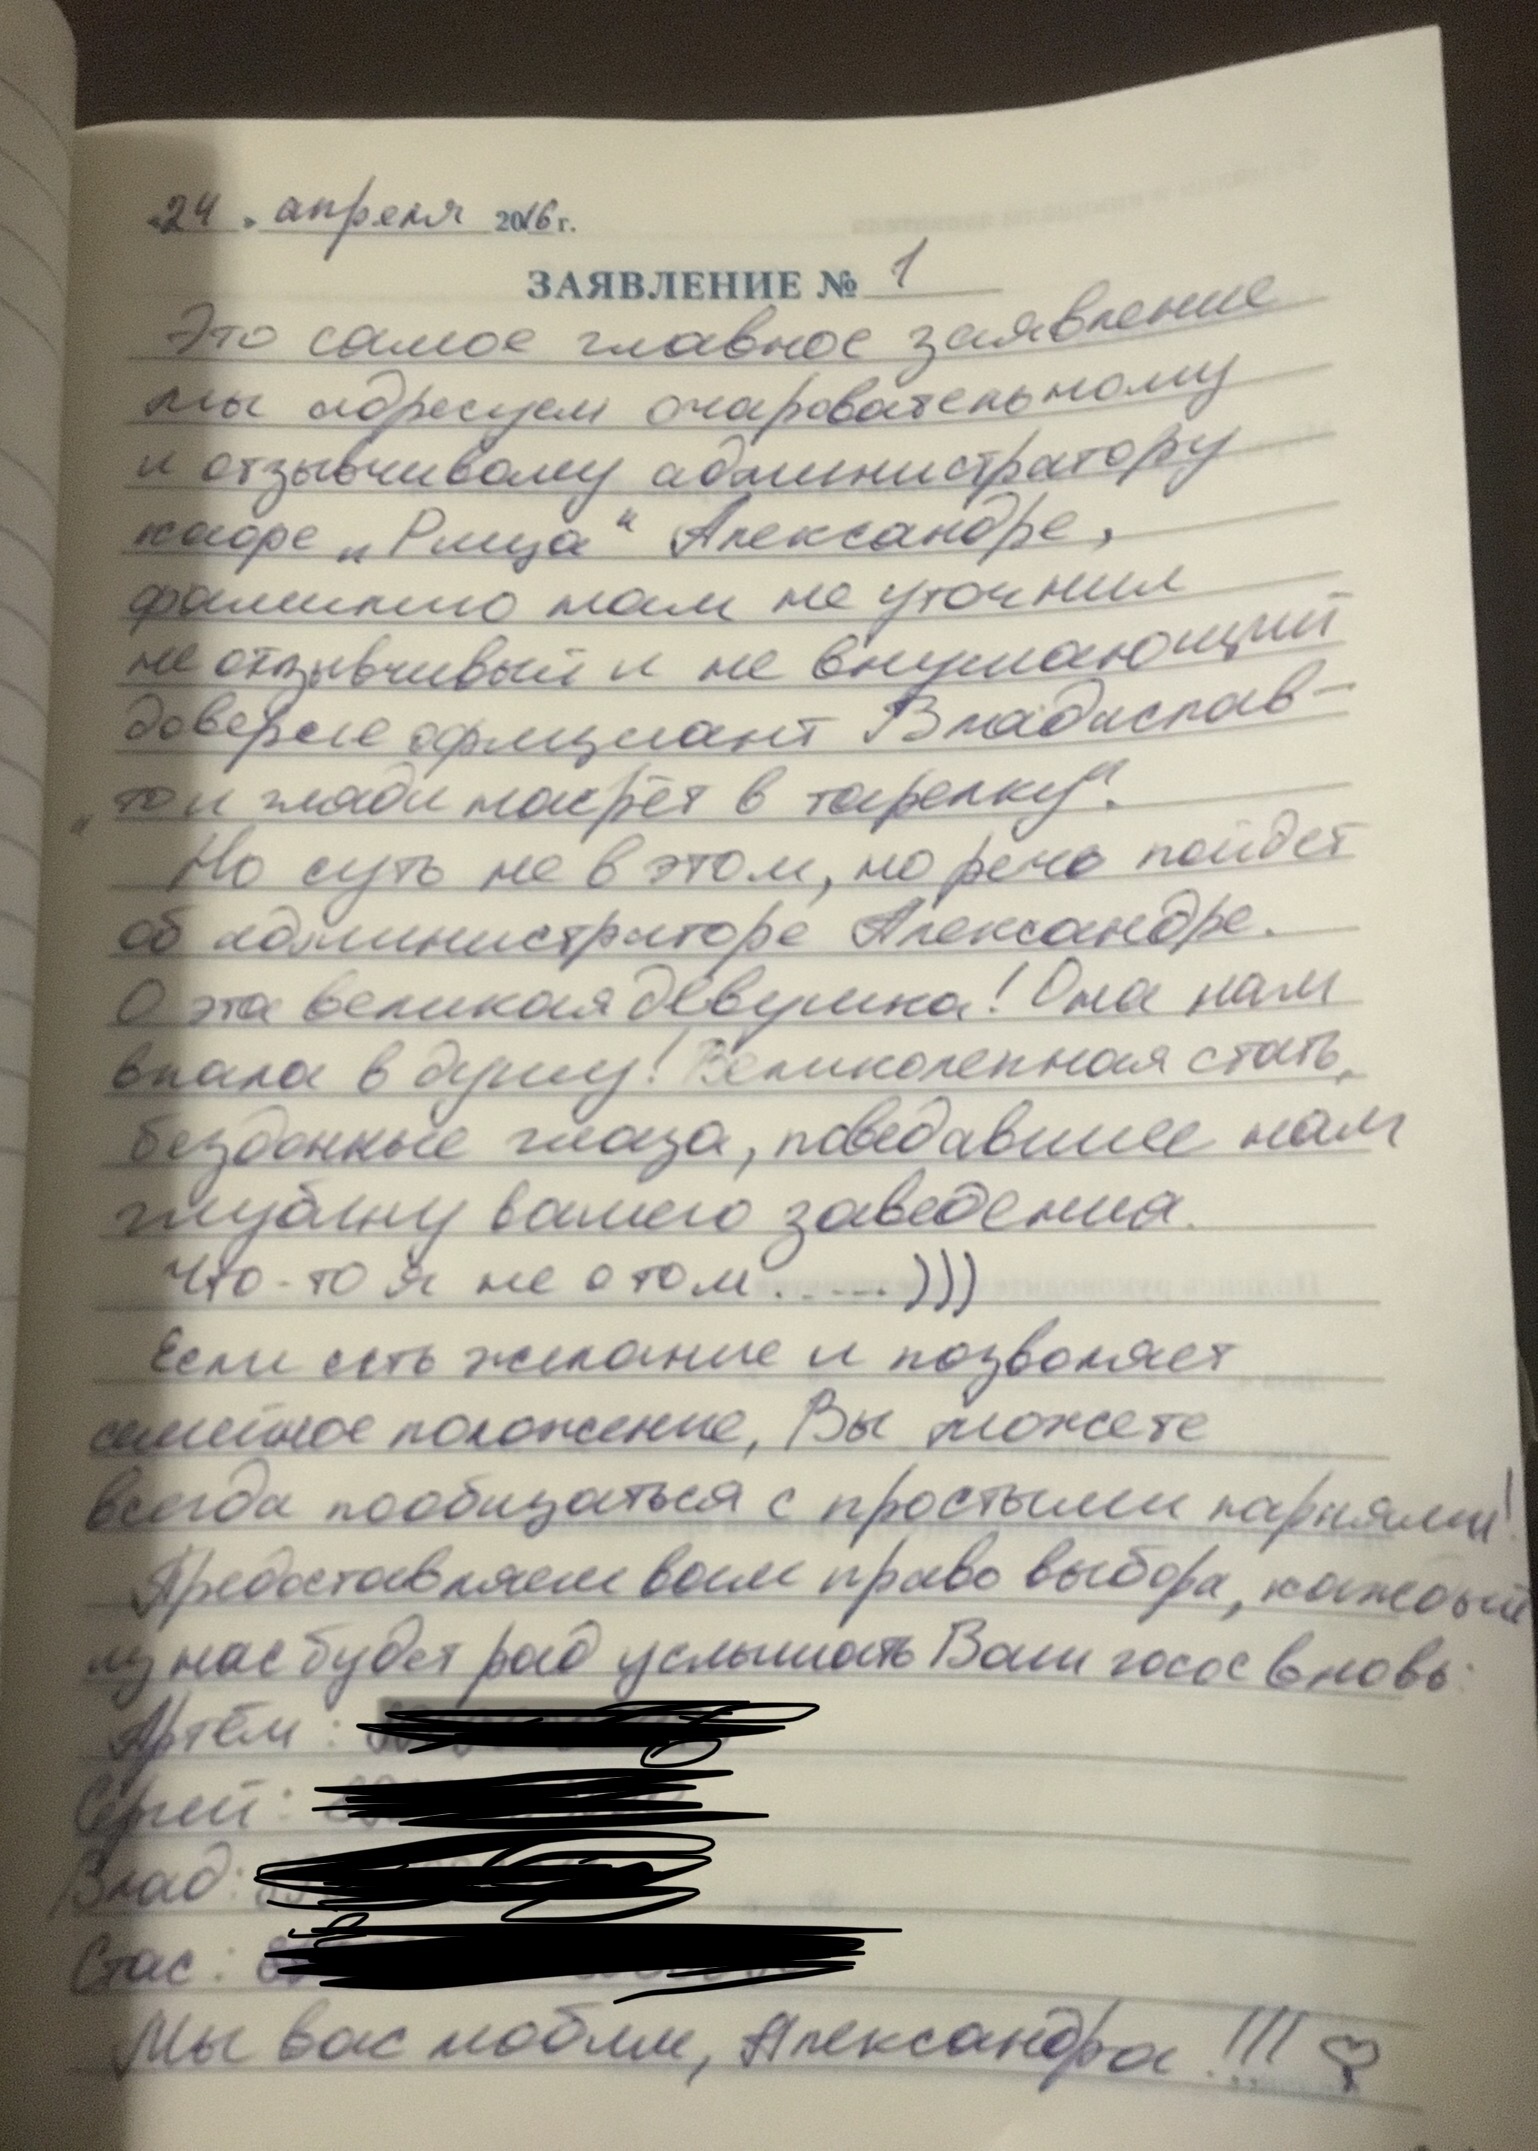 «24» апреля 2016 г.
ЗАЯВЛЕНИЕ № 1
Это самое главное заявление
мы адресуем очаровательному
и отзывчивому администратору
кафе „Рица“ Александре,
фамилию нам не уточнил
не отзывчивый и не внушающий
доверие официант Владислав –
„то и гляди насрёт в тарелку“.
Но суть не в этом, но речь пойдет
об администраторе Александре.
О эта великая девушка! Она нам
впала в душу! Великолепная стать,
бездонные глаза, поведавшие нам
глубину вашего заведения.
Что-то я не о том......)))
Если есть желание и позволяет
семейное положение, Вы можете
всегда пообщаться с простыми парнями!
Предоставляем вам право выбора, каждый
из нас будет рад услышать Ваш госос вновь:
Артём:
Сергей:
Влад:
Стас:
Мы вас любим, Александра!!!